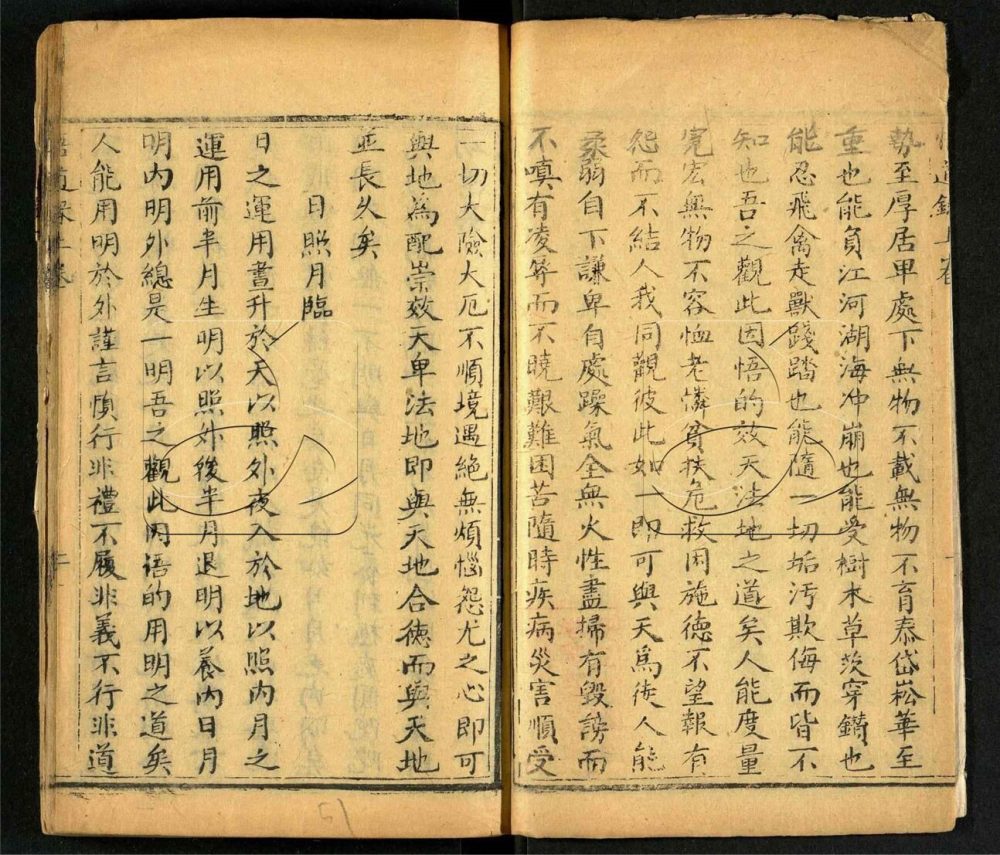 勢至厚居卑處下無物不載無物不育泰岱崧華至
重也能負江河湖海冲崩也能受樹木草茨穿鑽也
能忍飛禽走獸踐踏也能隨一切垢汚欺侮而皆不
知也吾之觀此因悟的效天法地之道矣人能度量
寛宏無物不容恤老憐貧扶危救困施德不望報有
怨而不結人我同觀彼此如一即可與天為徒人能
柔弱自下謙卑自處躁氣全無火性盡掃有毀謗而
不嗔有凌辱而不曉艱難困苦隨時疾病災害順受
一切大險大厄不順境遇絕無煩惱怨尤之心即可
與地爲配崇效天卑法地即與天地合德而與天地
並長久矣
日照月臨
日之運用晝升於天以照外夜入於地以照內月之
運用前半月生明以照外後半月退明以養內日月
明內明外總是一明吾之觀此因語的用明之道矣
人能用明於外謹言慎行非禮不履非義不行非道
悟道錄上卷